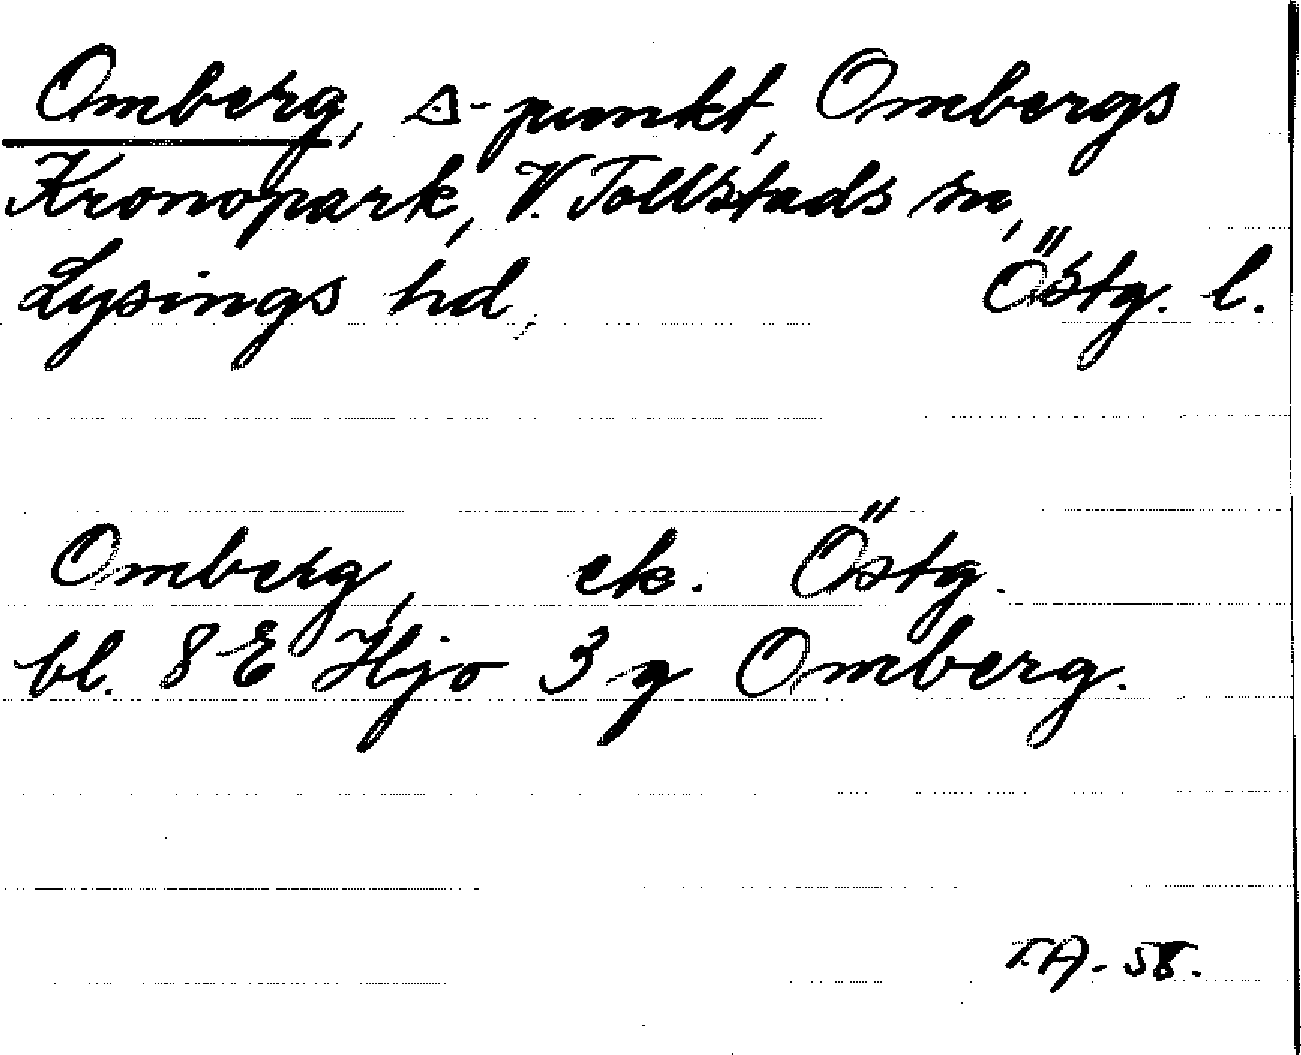 Omberg, △-punkt, Ombergs
Kronopark, V. Tollstads sn,
Lysings hd, Östg. l.
Omberg, ek. Östg.
bl. 8 E Hjo 3 g Omberg.
TA-58.